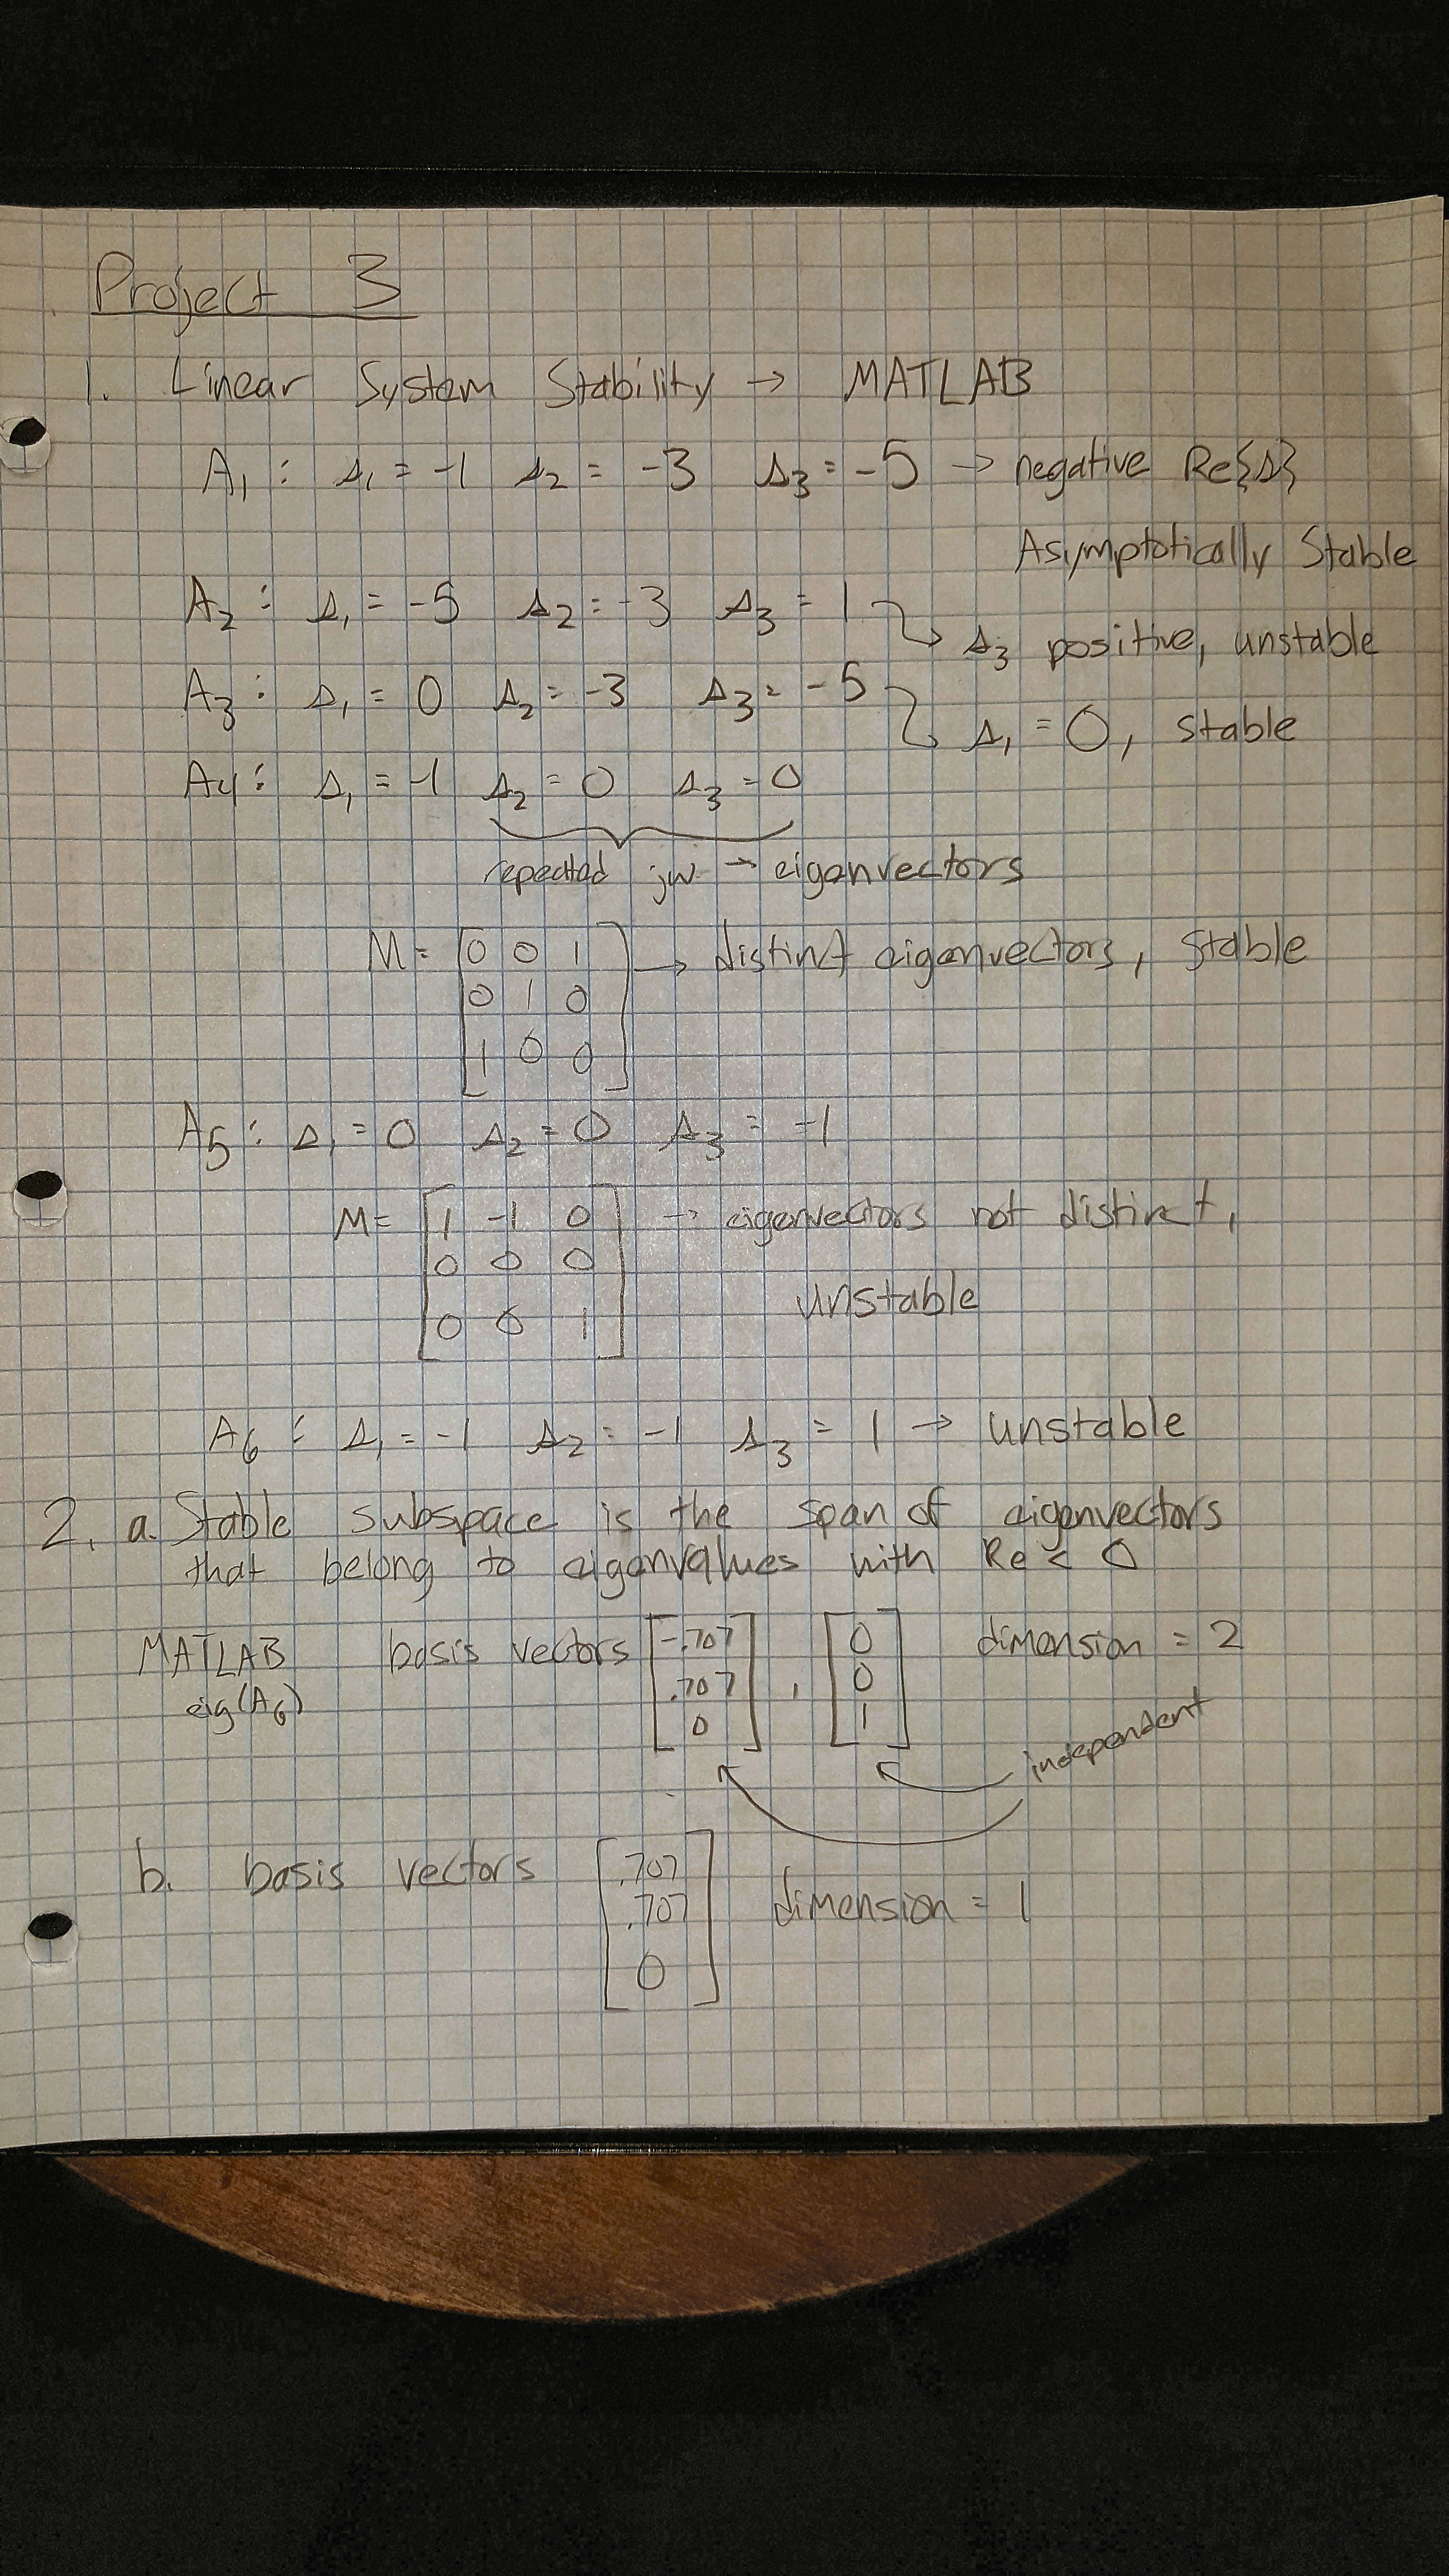 Project 3
1. Linear System Stability → MATLAB
A₁: λ₁ = -1 λ₂ = -3 λ₃ = -5 → negative Re{λ}
Asymptotically Stable
A₂: λ₁ = -5 λ₂ = -3 λ₃ = 1 → λ₃ positive, unstable
A₃: λ₁ = 0 λ₂ = -3 λ₃ = -5 → λ₁ = 0, stable
A₄: λ₁ = -1 λ₂ = 0 λ₃ = 0
repeated jw → eigenvectors
M = [0 0 1
0 1 0
1 0 0] → distinct eigenvectors, stable
A₅: λ₁ = 0 λ₂ = 0 λ₃ = -1
M = [1 -1 0
0 0 0
0 0 1] → eigenvectors not distinct,
unstable
A₆: λ₁ = -1 λ₂ = -1 λ₃ = 1 → unstable
2. a. Stable subspace is the span of eigenvectors
that belong to eigenvalues with Re < 0
MATLAB basis vectors [-.707 .707 0], [0 0 1] dimension = 2
eig(A₆)
independent
b. basis vectors [.707 .707 0] dimension = 1